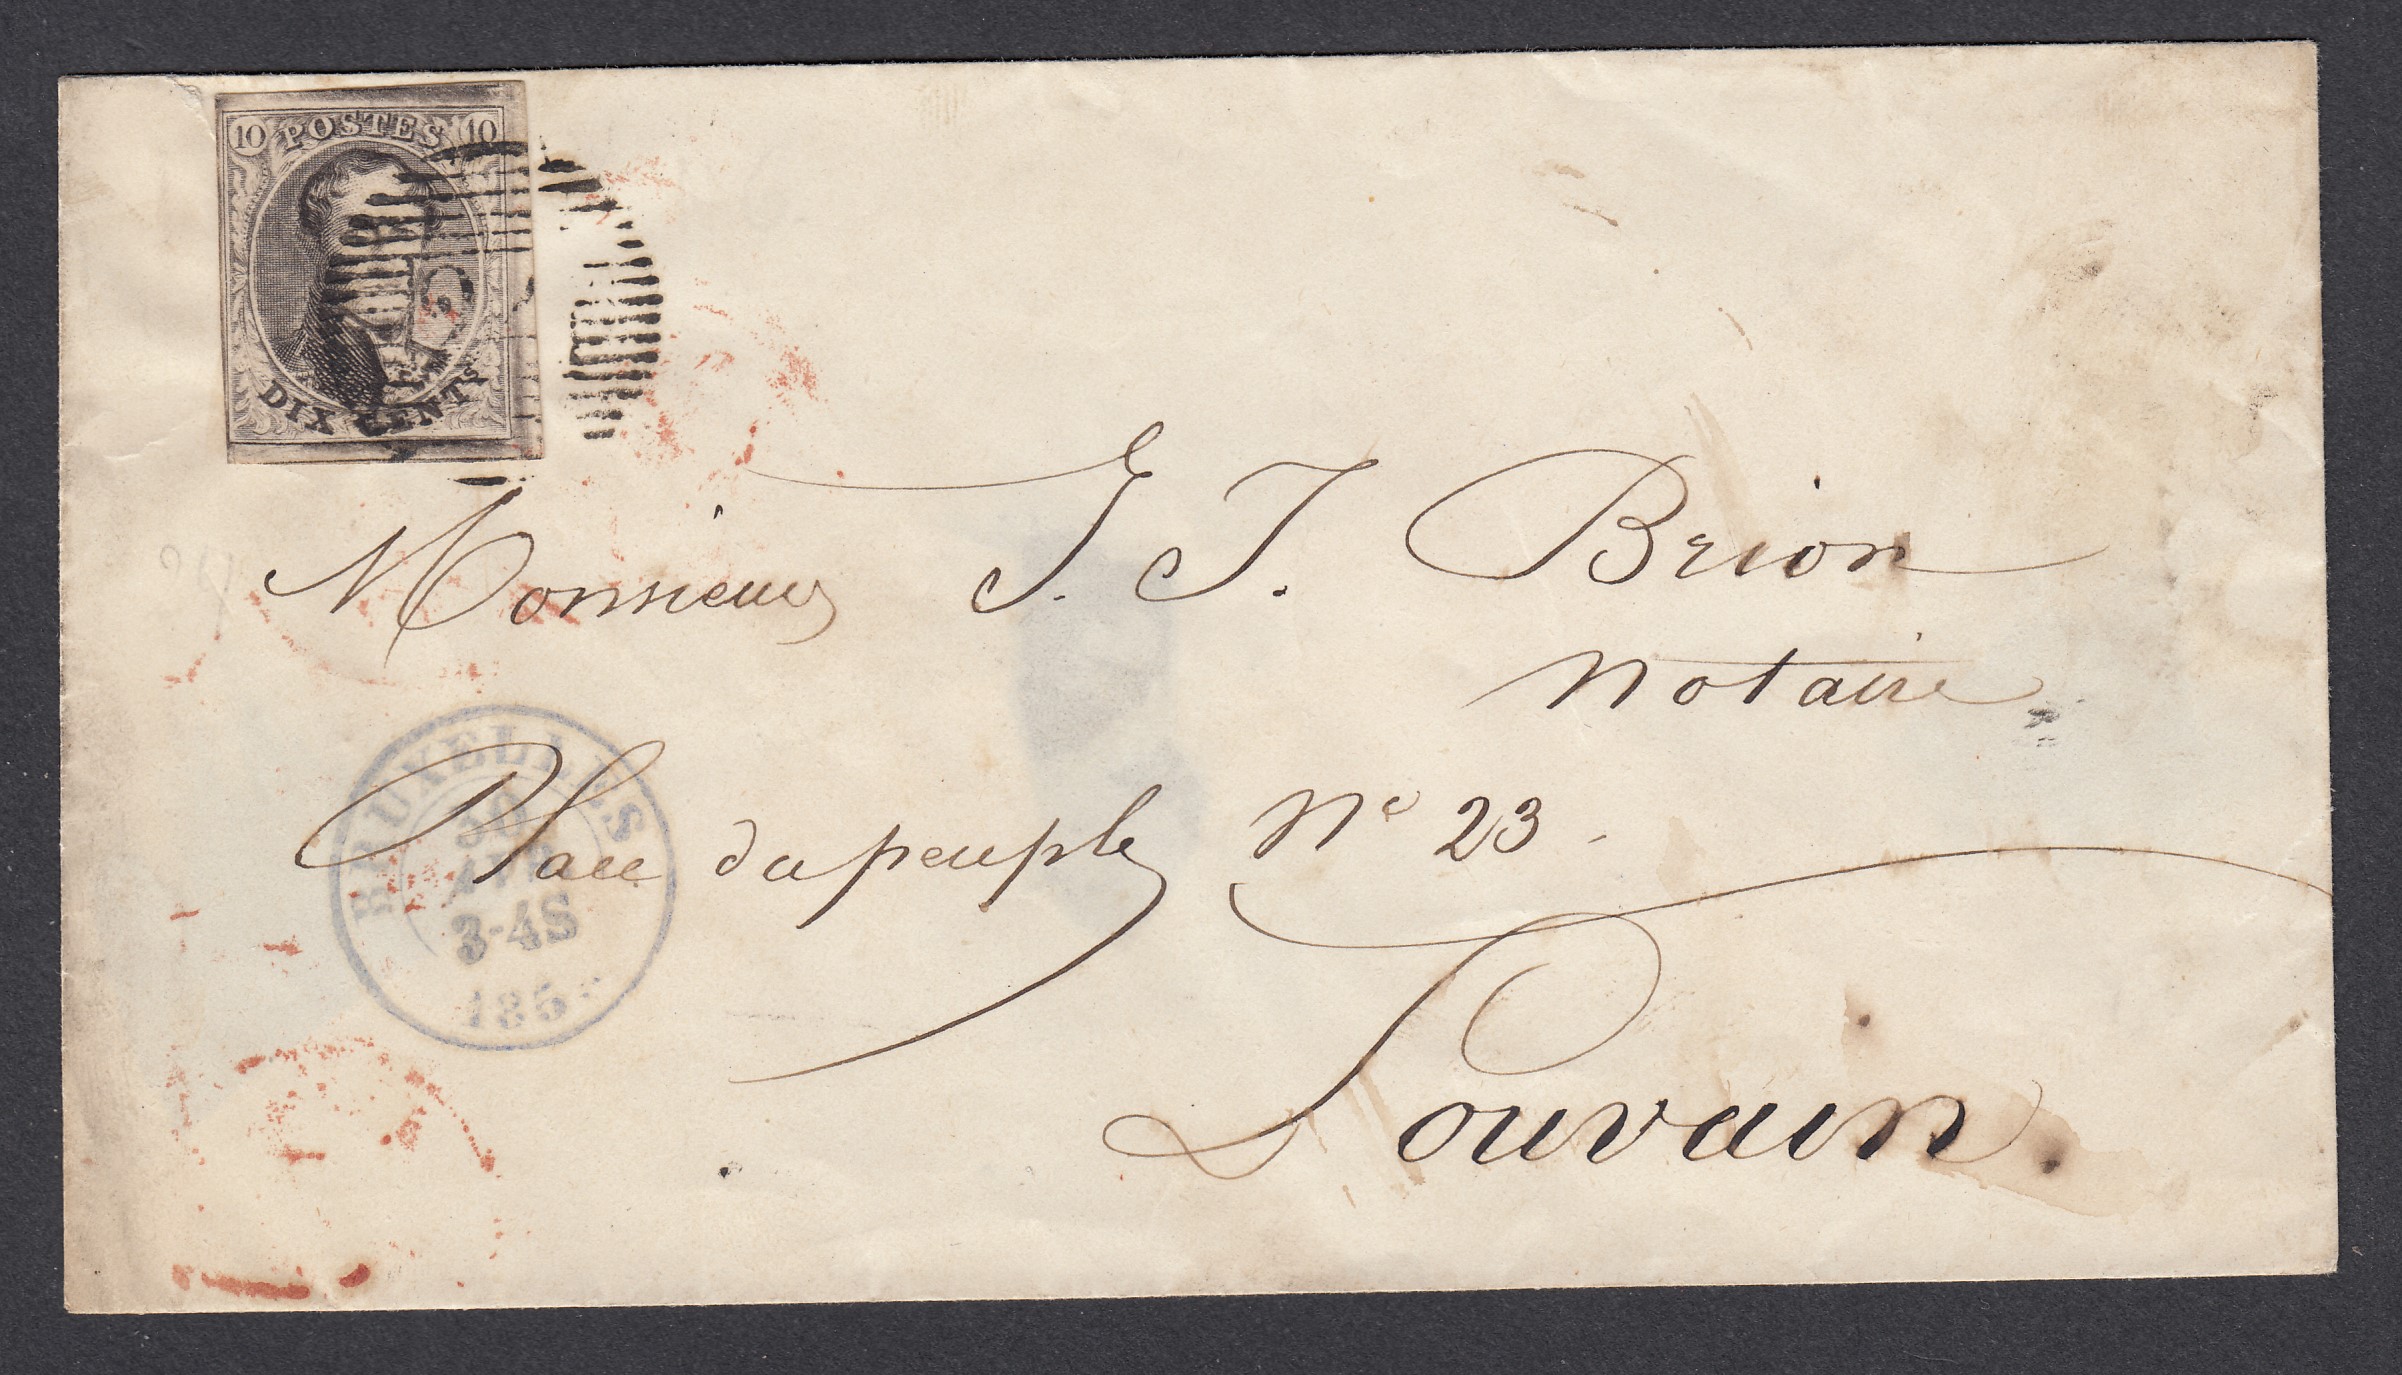 10 POSTES 10
DIX CENTS
Monsieur J. J. Brion
Notaire
Place du peuple Nº 23.
Louvain.
BRUXELLES
3-4S